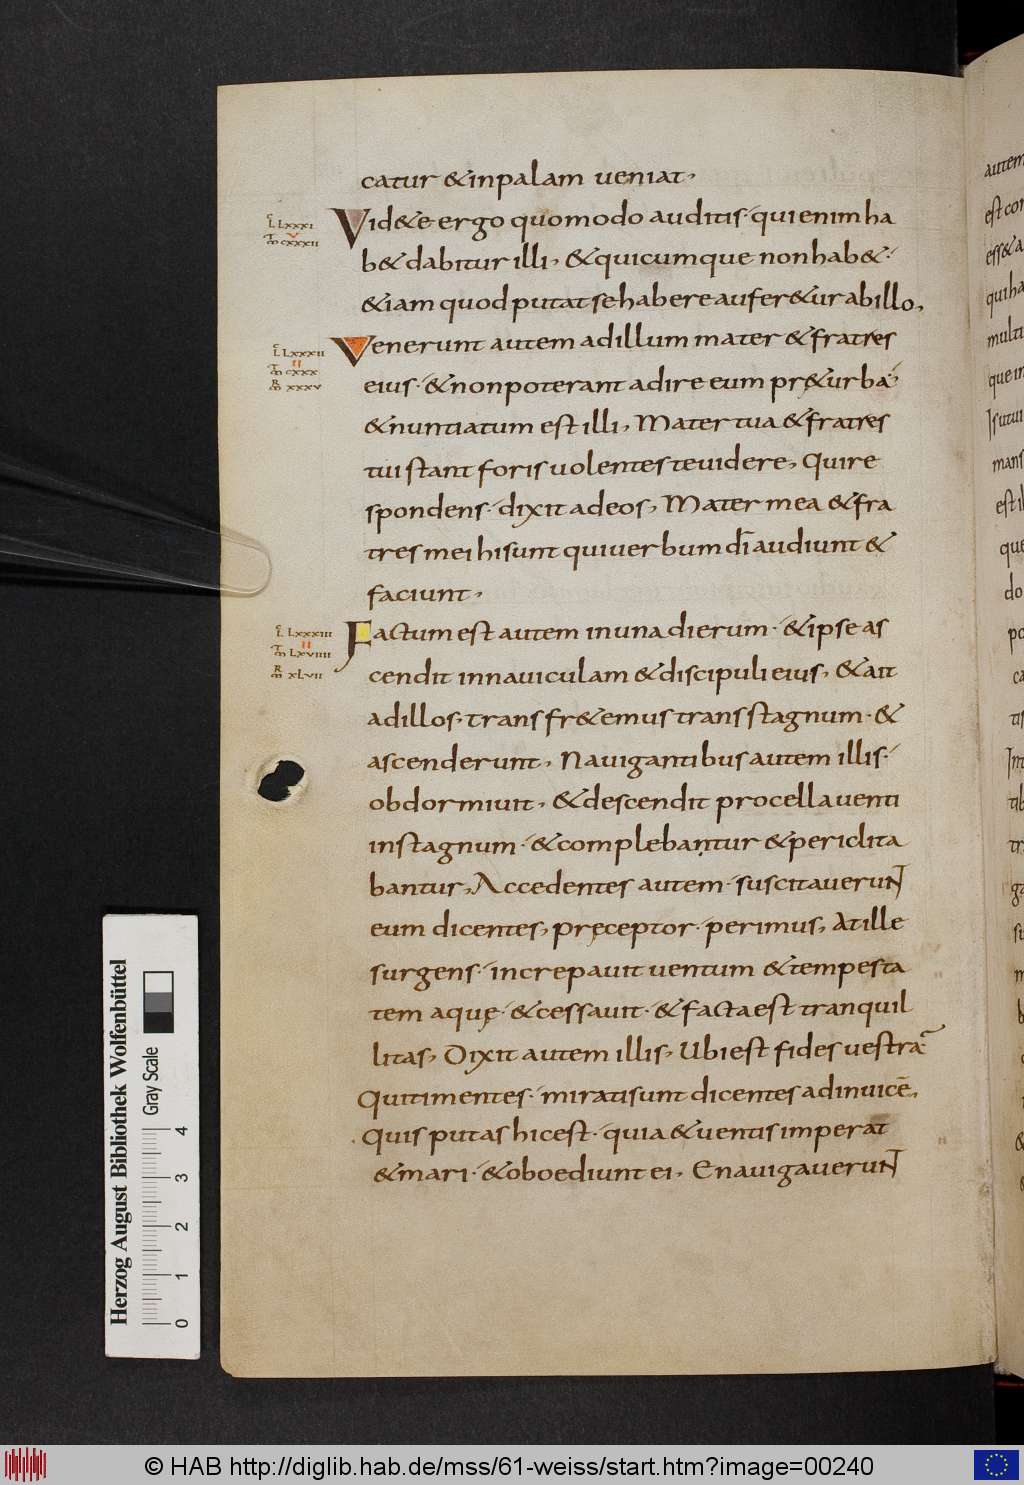 catur & inpalam ueniat,
L LXXXI
M CXXXII
V
Vid&e ergo quomodo auditis· qui enim ha
b& dabitur illi, & quicumque non hab&·
&iam quod putat se habere aufer&ur ab illo,
L LXXXII
II
M CXXX
R
M XXXV
Venerunt autem ad illum mater & fratres
eius· & non poterant adire eum pr& urba·
& nuntiatum est illi, Mater tua & fratres
tui stant foris uolentes te uidere, Qui re
spondens· dixit ad eos, Mater mea & fra
tres mei hi sunt qui uerbum dī audiunt &
faciunt,
L LXXXIII
II
M LXVIIII
R
M XLVII
Factum est autem in una dierum· & ipse as
cendit in nauiculam & discipuli eius, & ait
ad illos· transfr&emus trans stagnum· &
ascenderunt, Nauigantibus autem illis·
obdormiuit, & descendit procella uenti
in stagnum· & complebantur & periclita
bantur, Accedentes autem· suscitauerunt
eum dicentes, pręceptor· perimus, At ille
surgens· increpauit uentum & tempesta
tem aquę· & cessauit· & facta est tranquil
litas, Dixit autem illis, Ubi est fides uestra
Qui timentes· mirati sunt dicentes ad inuicē,
Quis putas hic est· quia & uentis imperat
& mari· & oboediunt ei, Enauigauerunt
autem
multi
que in
mans
que
Herzog August Bibliothek Wolfenbüttel
Gray Scale
0 1 2 3 4
© HAB http://diglib.hab.de/mss/61-weiss/start.htm?image=00240